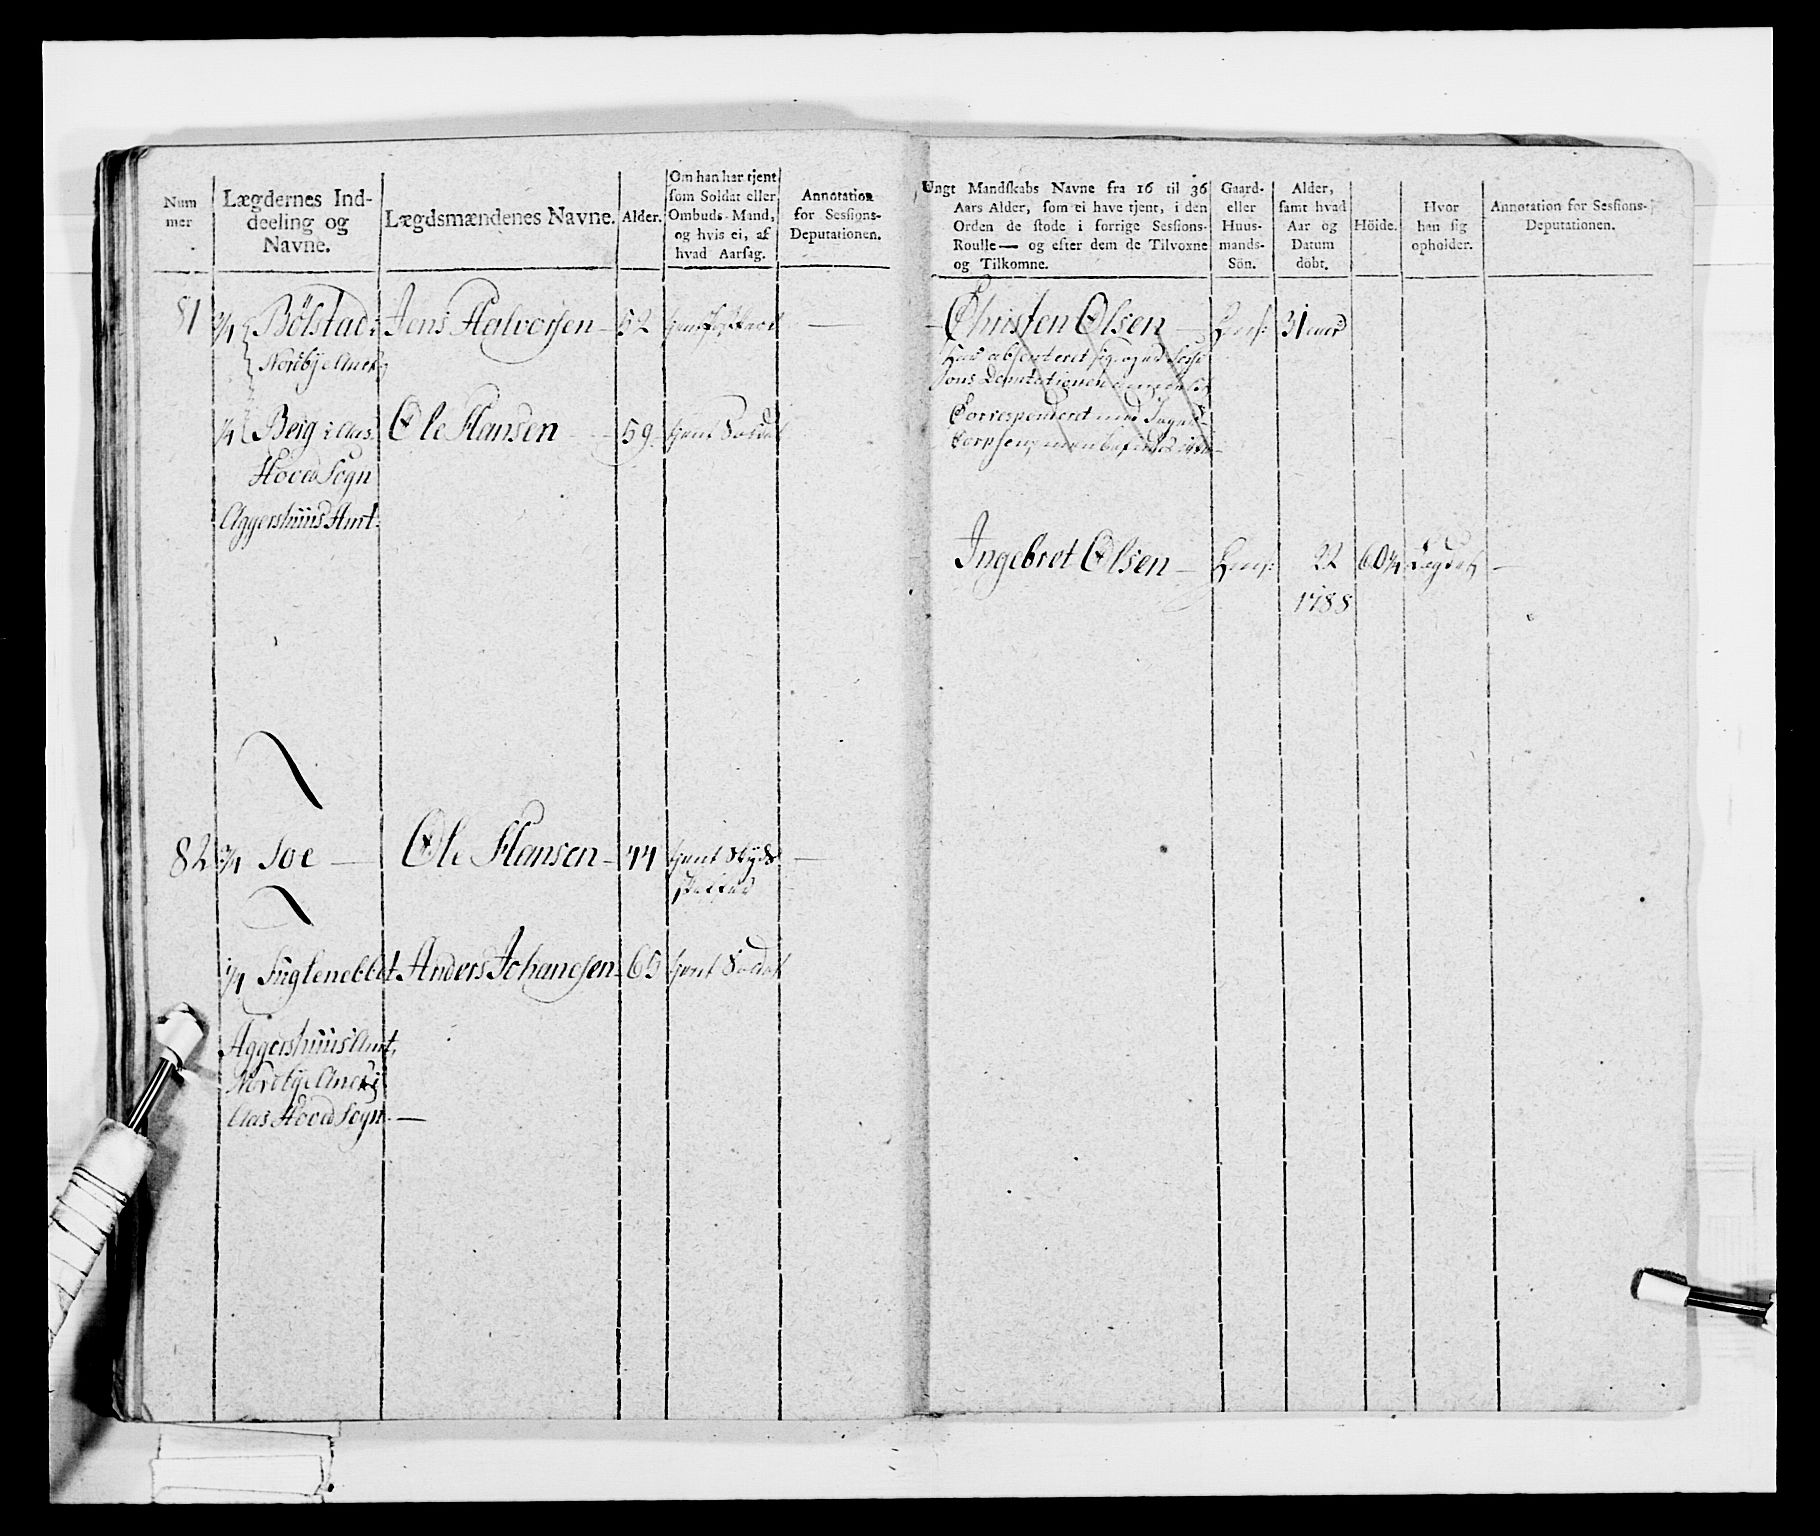 Num
mer
Lægdernes Ind-
deeling og
Navne.
Lægdsmændenes Navne.
Alder.
Om han har tjent
som Soldat eller
Ombuds-Mand,
og hvis ei, af
hvad Aarsag.
Annotation
for Sessions-
Deputationen.
Ungt Mandskabs Navne fra 16 til 36
Aars Alder, som ei have tjent, i den
Orden de stode i forrige Sessions-
Roulle — og efter dem de Tilvoxne
og Tilkomne.
Gaard-
eller
Huus-
mands-
Sön.
Alder,
samt hvad
Aar og
Datum
döbt.
Höide.
Hvor
han sig
opholder.
Annotation for Sessions-
Deputationen.
81 3/4 Bölstad Jens Halvorsen 52 —
Nordbye Anex
1/4 Berg i Aas Ole Hansen 59
Hoved Sogn
Aggershuus Amt.
Christen Olsen — 31 aar
Corresponderet med
Ingebret Olsen — 22 60 1/4 —
1788
82 3/4 Soe — Ole Hansen 44 —
1/4 Fuglenebbet Anders Johansen 65
Aggershuus Amt,
Nordbye Anex i
Aas Hoved Sogn. —